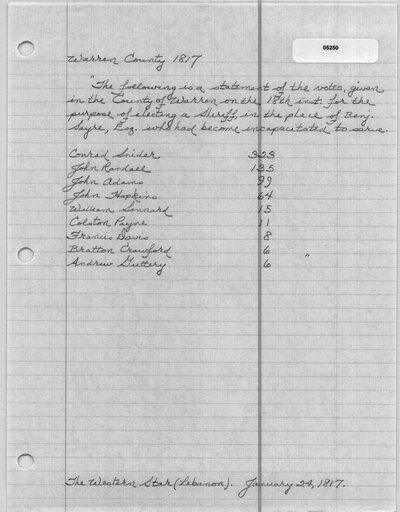 05250
Warren County 1817
"The following is a statement of the votes, given
in the County of Warren on the 18th inst. for the
purpose of electing a Sheriff, in the place of Benj.
Sayre, Esq. who had become incapacitated to serve.
Conrad Snider 323
John Randall 135
John Adams 99
John Hopkins 64
William Lennard 15
Colston Payne 11
Francis Davis 8
Bratton Crawford 6 "
Andrew Guttery 6
The Western Star (Lebanon). January 24, 1817.